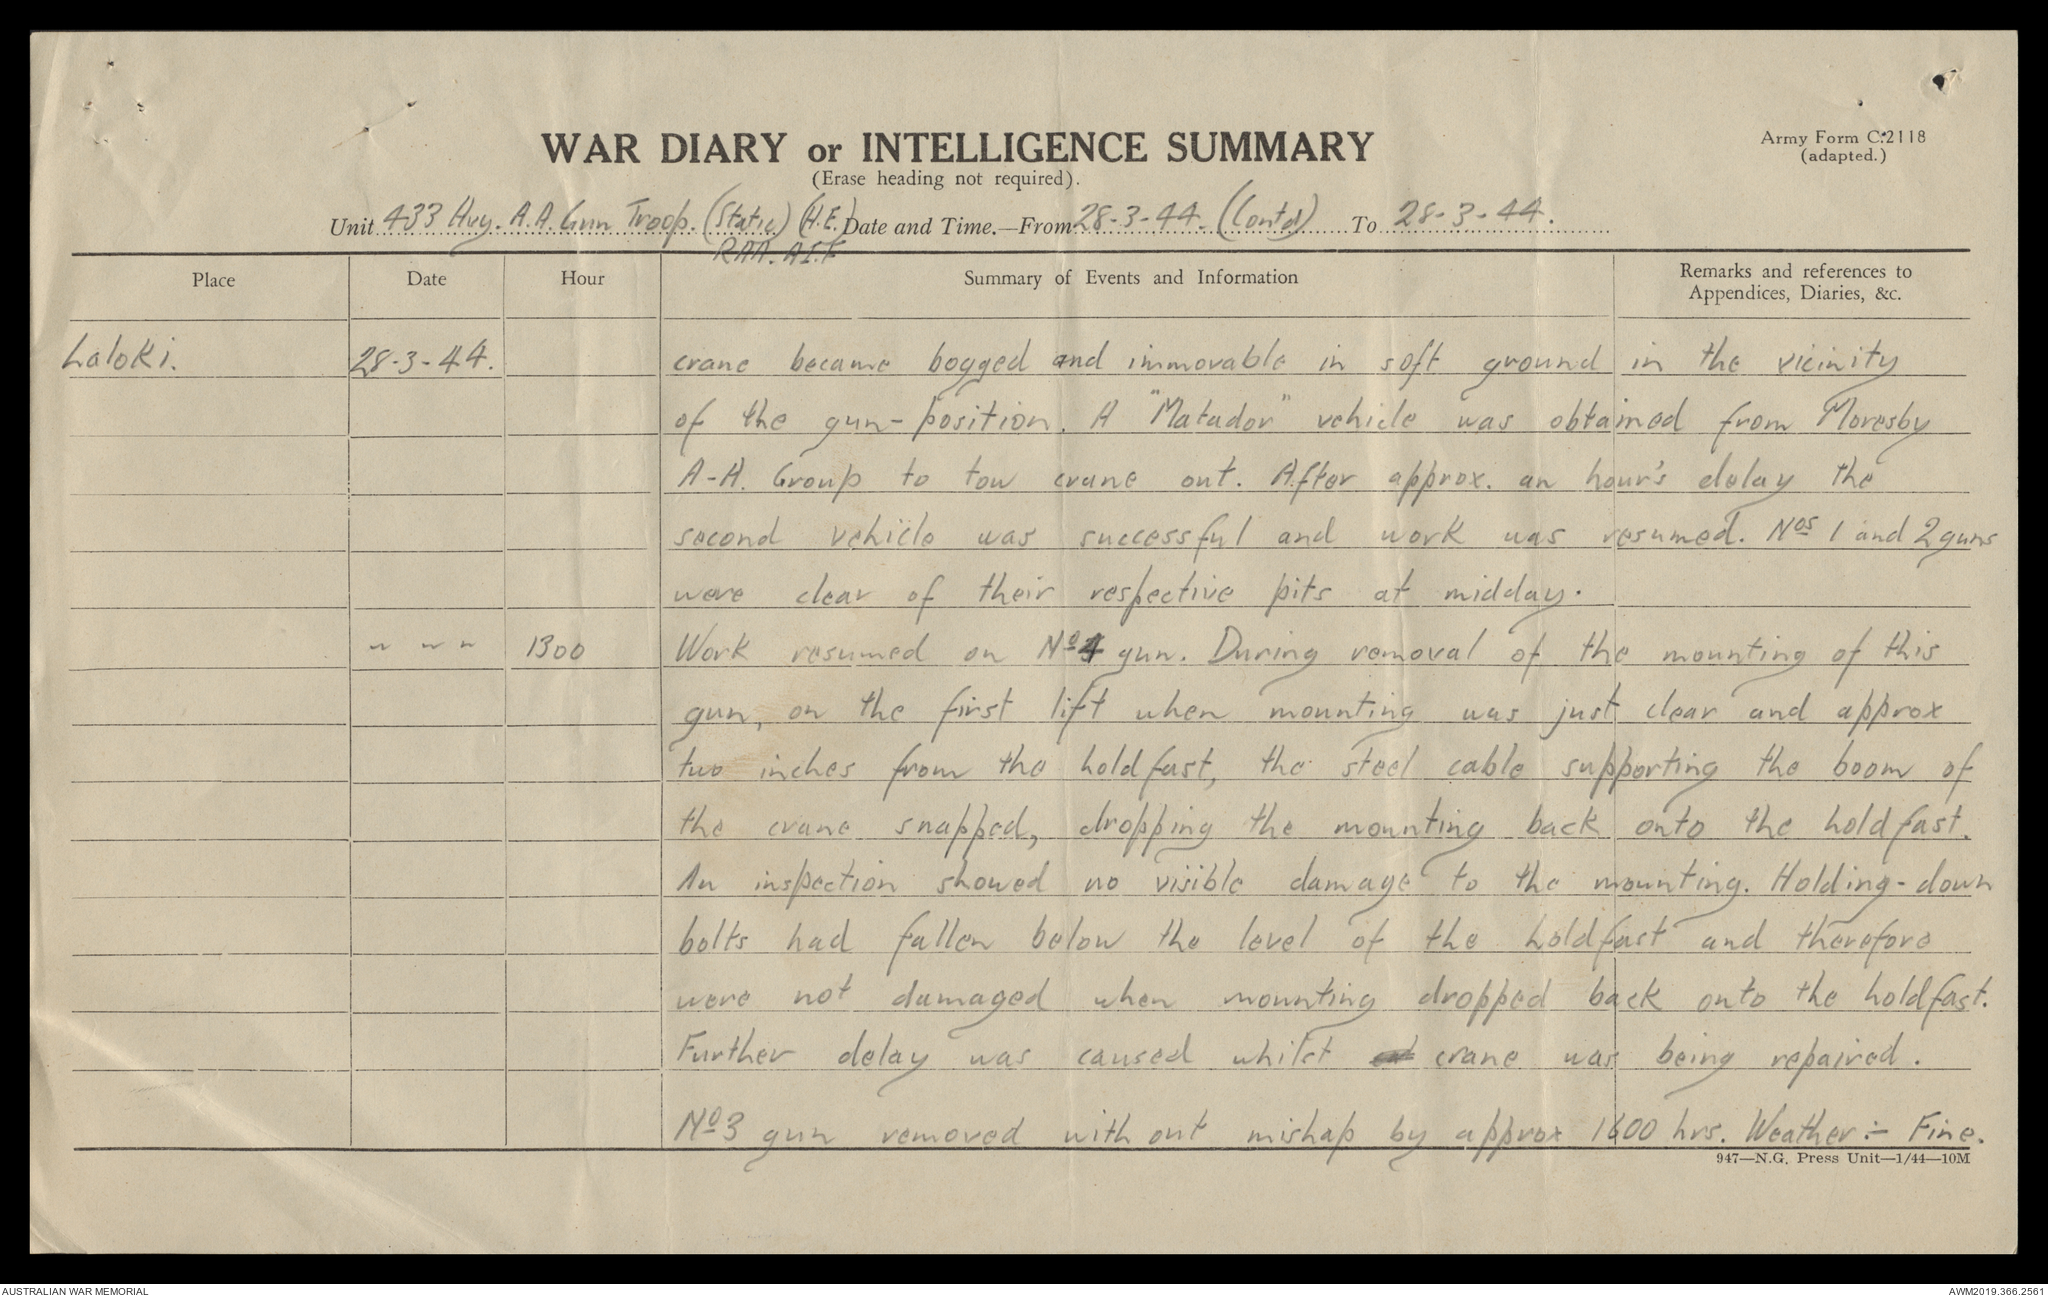 WAR DIARY or INTELLIGENCE SUMMARY
Army Form C.2118
(adapted.)
(Erase heading not required).
Unit 433 Hvy. A.A. Gun Troop. (Static) (H.E.) Date and Time.—From 28-3-44. (Contd) To 28-3-44.
RAA. A.I.F
Place Date Hour Summary of Events and Information Remarks and references to
Appendices, Diaries, &c.
Laloki. 28-3-44. crane became bogged and immovable in soft ground in the vicinity
of the gun-position. A "Matador" vehicle was obtained from Moresby
A-A. Group to tow crane out. After approx. an hour's delay the
second vehicle was successful and work was resumed. Nos 1 and 2 guns
were clear of their respective pits at midday.
" " " 1300 Work resumed on No 4 gun. During removal of the mounting of this
gun, on the first lift when mounting was just clear and approx
two inches from the holdfast, the steel cable supporting the boom of
the crane snapped, dropping the mounting back onto the holdfast.
An inspection showed no visible damage to the mounting. Holding-down
bolts had fallen below the level of the holdfast and therefore
were not damaged when mounting dropped back onto the holdfast.
Further delay was caused whilst crane was being repaired.
No 3 gun removed without mishap by approx 1600 hrs. Weather :- Fine.
947—N.G. Press Unit—1/44—10M
AUSTRALIAN WAR MEMORIAL AWM2019.366.2561